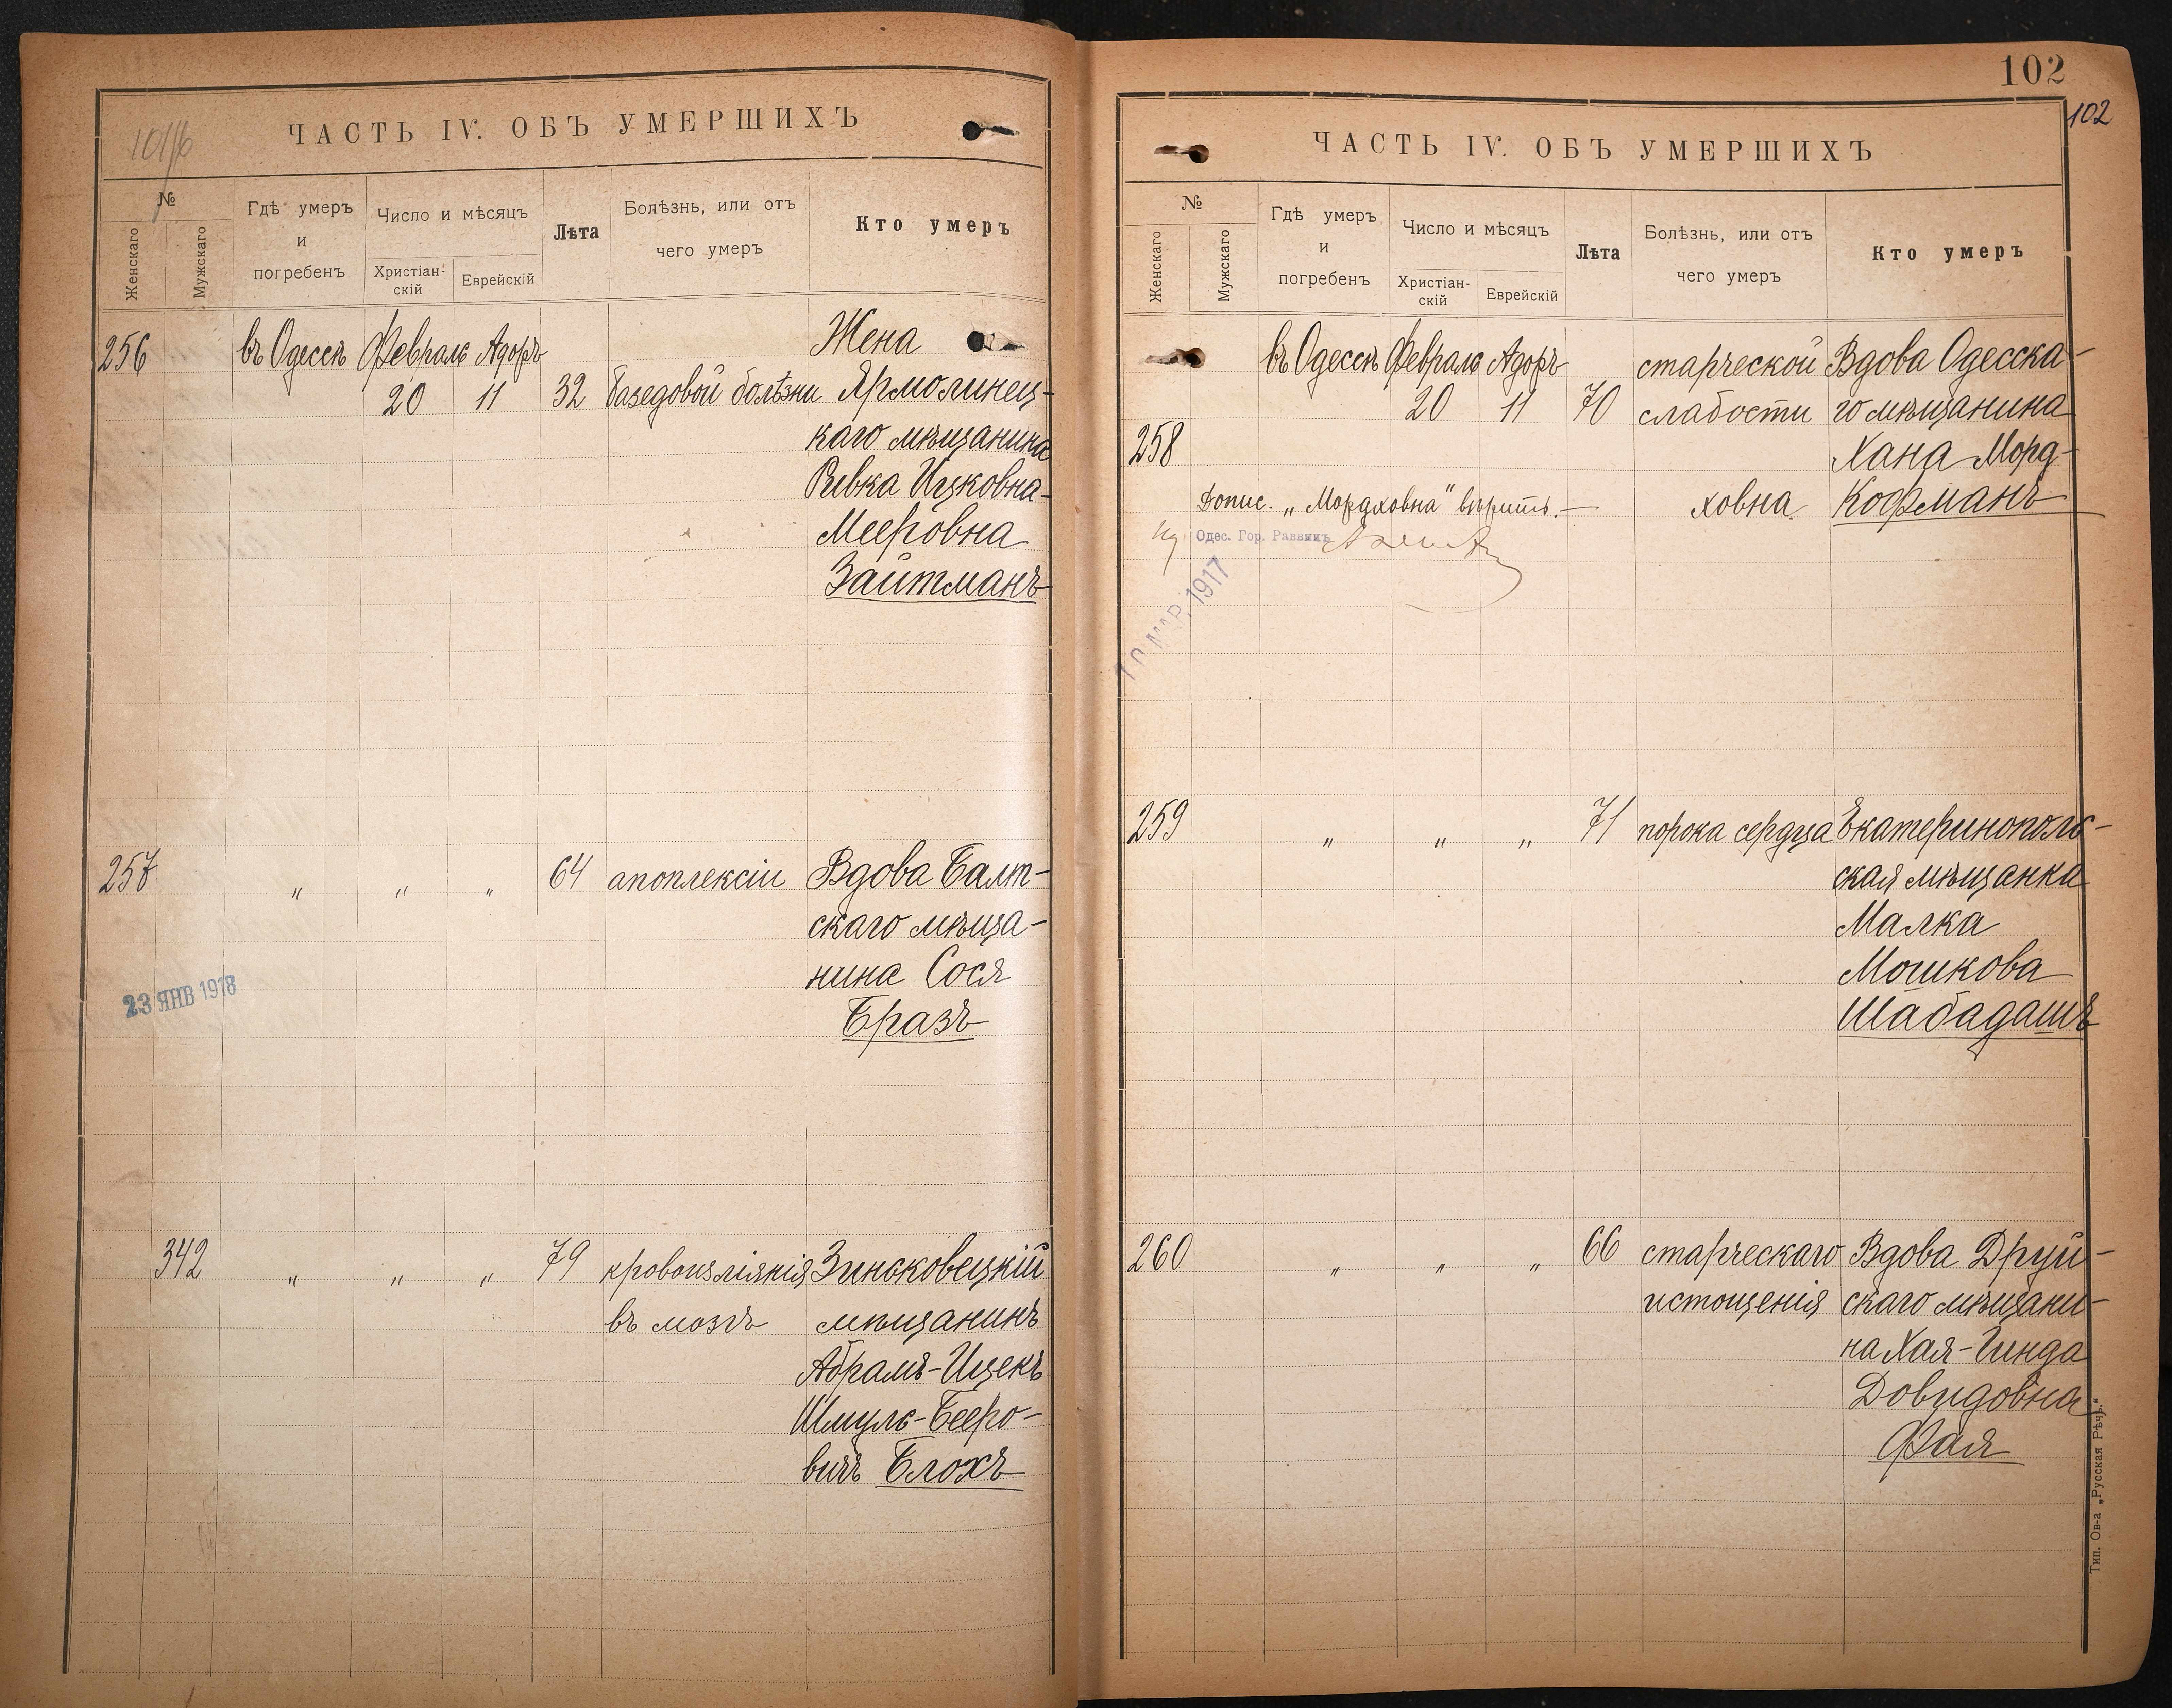 101/16
ЧАСТЬ IV. ОБЪ УМЕРШИХЪ
№
Женскаго
Мужскаго
Гдѣ умеръ
и
погребенъ
Число и мѣсяцъ
Христіан-
скій
Еврейскій
Лѣта
Болѣзнь, или отъ
чего умеръ
Кто умеръ
256 въ Одессѣ Февраль Адоръ Жена
20 11 32 базедовой болѣзни Ярмолинец-
каго мѣщанина
Ривка Ицковна-
Мееровна
Зайтманъ
257 „ „ „ 64 апоплексіи Вдова Балт-
скаго мѣща-
нина Сося
Бразъ
23 ЯНВ 1918
342 „ „ „ 79 кровоизліянія Зинсковецкій
въ мозгъ мѣщанинъ
Абрамъ-Ицекъ
Шмуль-Беэро-
вичъ Блохъ
102
102
ЧАСТЬ IV. ОБЪ УМЕРШИХЪ
№
Женскаго
Мужскаго
Гдѣ умеръ
и
погребенъ
Число и мѣсяцъ
Христіан-
скій
Еврейскій
Лѣта
Болѣзнь, или отъ
чего умеръ
Кто умеръ
въ Одессѣ Февраль Адоръ старческой Вдова Одесска-
20 11 70 слабости го мѣщанина
258 Хана Морд-
Допис. „Мордховна" вѣрить.— ховна Кофманъ
Одес. Гор. Раввинъ
МАР. 1917
259 „ „ „ 71 порока сердца Екатеринополь-
ская мѣщанка
Малка
Мошкова
Шабадашъ
260 „ „ „ 66 старческаго Вдова Друй-
истощенія скаго мѣщани-
на Хая-Гинда
Довидовна
Фая
Тип. Ов-а „Русская Рѣчь."